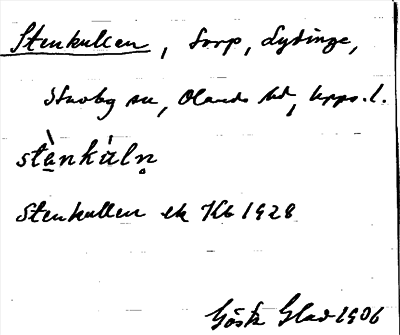 Stenkullen, torp, Lydinge,
Stavby sn, Olands hd, Upps. l.
stènkúln̥
Stenkullen ek Kb 1928
Gösta Glad 1906